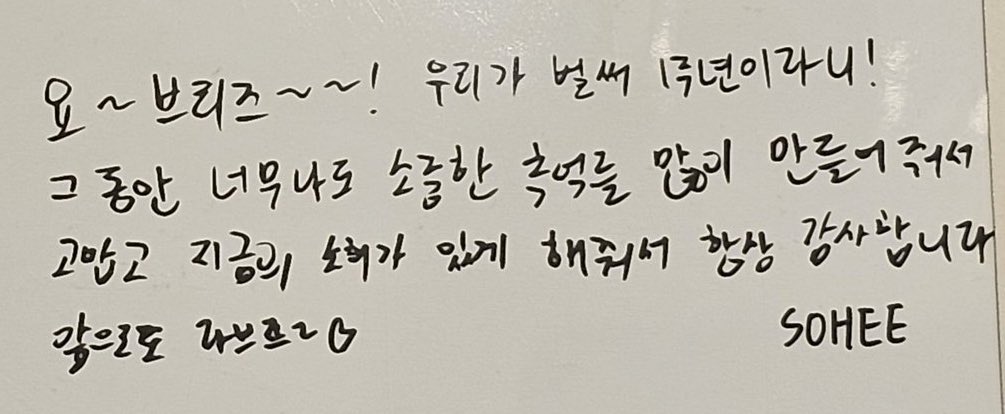 요~브리즈~~! 우리가 벌써 1주년이라니!
그동안 너무나도 소중한 추억들 많이 만들어줘서
고맙고 지금의 소희가 있게 해줘서 항상 감사합니다
앞으로도 라브뜨~
SOHEE